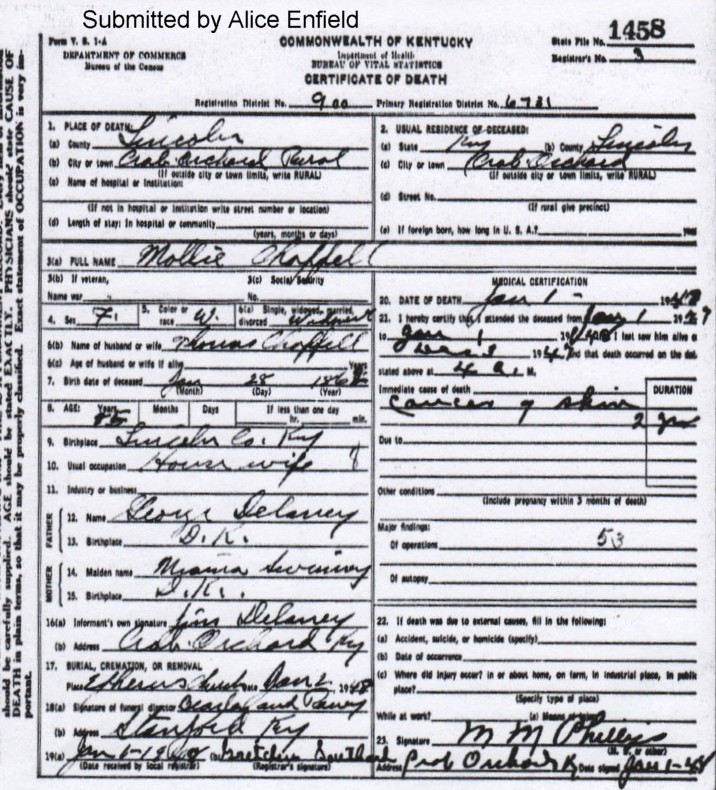 Submitted by Alice Enfield
Form V. S. 1-A
DEPARTMENT OF COMMERCE
Bureau of the Census
COMMONWEALTH OF KENTUCKY
Department of Health
BUREAU OF VITAL STATISTICS
CERTIFICATE OF DEATH
State File No. 1458
Registrar's No. 3
Registration District No. 900 Primary Registration District No. 6721
1. PLACE OF DEATH:
(a) County Lincoln
(b) City or town Crab Orchard Rural
(If outside city or town limits, write RURAL)
(c) Name of hospital or institution:
(If not in hospital or institution write street number or location)
(d) Length of stay: In hospital or community
(years, months or days)
2. USUAL RESIDENCE OF DECEASED:
(a) State Ky (b) County Lincoln
(c) City or town Crab Orchard
(If outside city or town limits, write RURAL)
(d) Street No.
(If rural give precinct)
(e) If foreign born, how long in U. S. A.? years
3(a) FULL NAME Mollie Chappell
3(b) If veteran,
Name war
3(c) Social Security
No.
4. Sex F. 5. Color or race W. 6(a) Single, widowed, married, divorced Widowed
6(b) Name of husband or wife Thomas Chappell
6(c) Age of husband or wife if alive Years
7. Birth date of deceased Jan 28
(Month) (Day) (Year)
8. AGE: Years 85 Months Days If less than one day
hr. min.
9. Birthplace Lincoln Co. Ky
10. Usual occupation House wife
11. Industry or business
FATHER
12. Name George Delaney
13. Birthplace D.K.
MOTHER
14. Maiden name
15. Birthplace D.K.
16(a) Informant's own signature Jim Delaney
(b) Address Crab Orchard Ky
17. BURIAL, CREMATION, OR REMOVAL
Place Date Jan 2 1948
18(a) Signature of funeral director
(b) Address Stanford Ky
19(a) Jan 1-1948 (b) Gretchen Southard
(Date received by local registrar) (Registrar's signature)
MEDICAL CERTIFICATION
20. DATE OF DEATH Jan 1 - 1948
21. I hereby certify that I attended the deceased from
to Jan 1 1948 I last saw him alive on
194 and that death occurred on the date
stated above at 4 a. M.
Immediate cause of death DURATION
cancer of skin 2 yrs
Due to
Other conditions
(Include pregnancy within 3 months of death)
Major findings:
Of operations 53
Of autopsy
22. If death was due to external causes, fill in the following:
(a) Accident, suicide, or homicide (specify)
(b) Date of occurrence
(c) Where did injury occur? in or about home, on farm, in industrial place, in public
place?
(Specify type of place)
While at work? (e) Means of injury
23. Signature M M Phillips
(M. D. or other)
Address Crab Orchard K Date signed Jan 1-48
should be carefully supplied. AGE should be stated EXACTLY. PHYSICIANS should state CAUSE OF
DEATH in plain terms, so that it may be properly classified. Exact statement of OCCUPATION is very im-
portant.